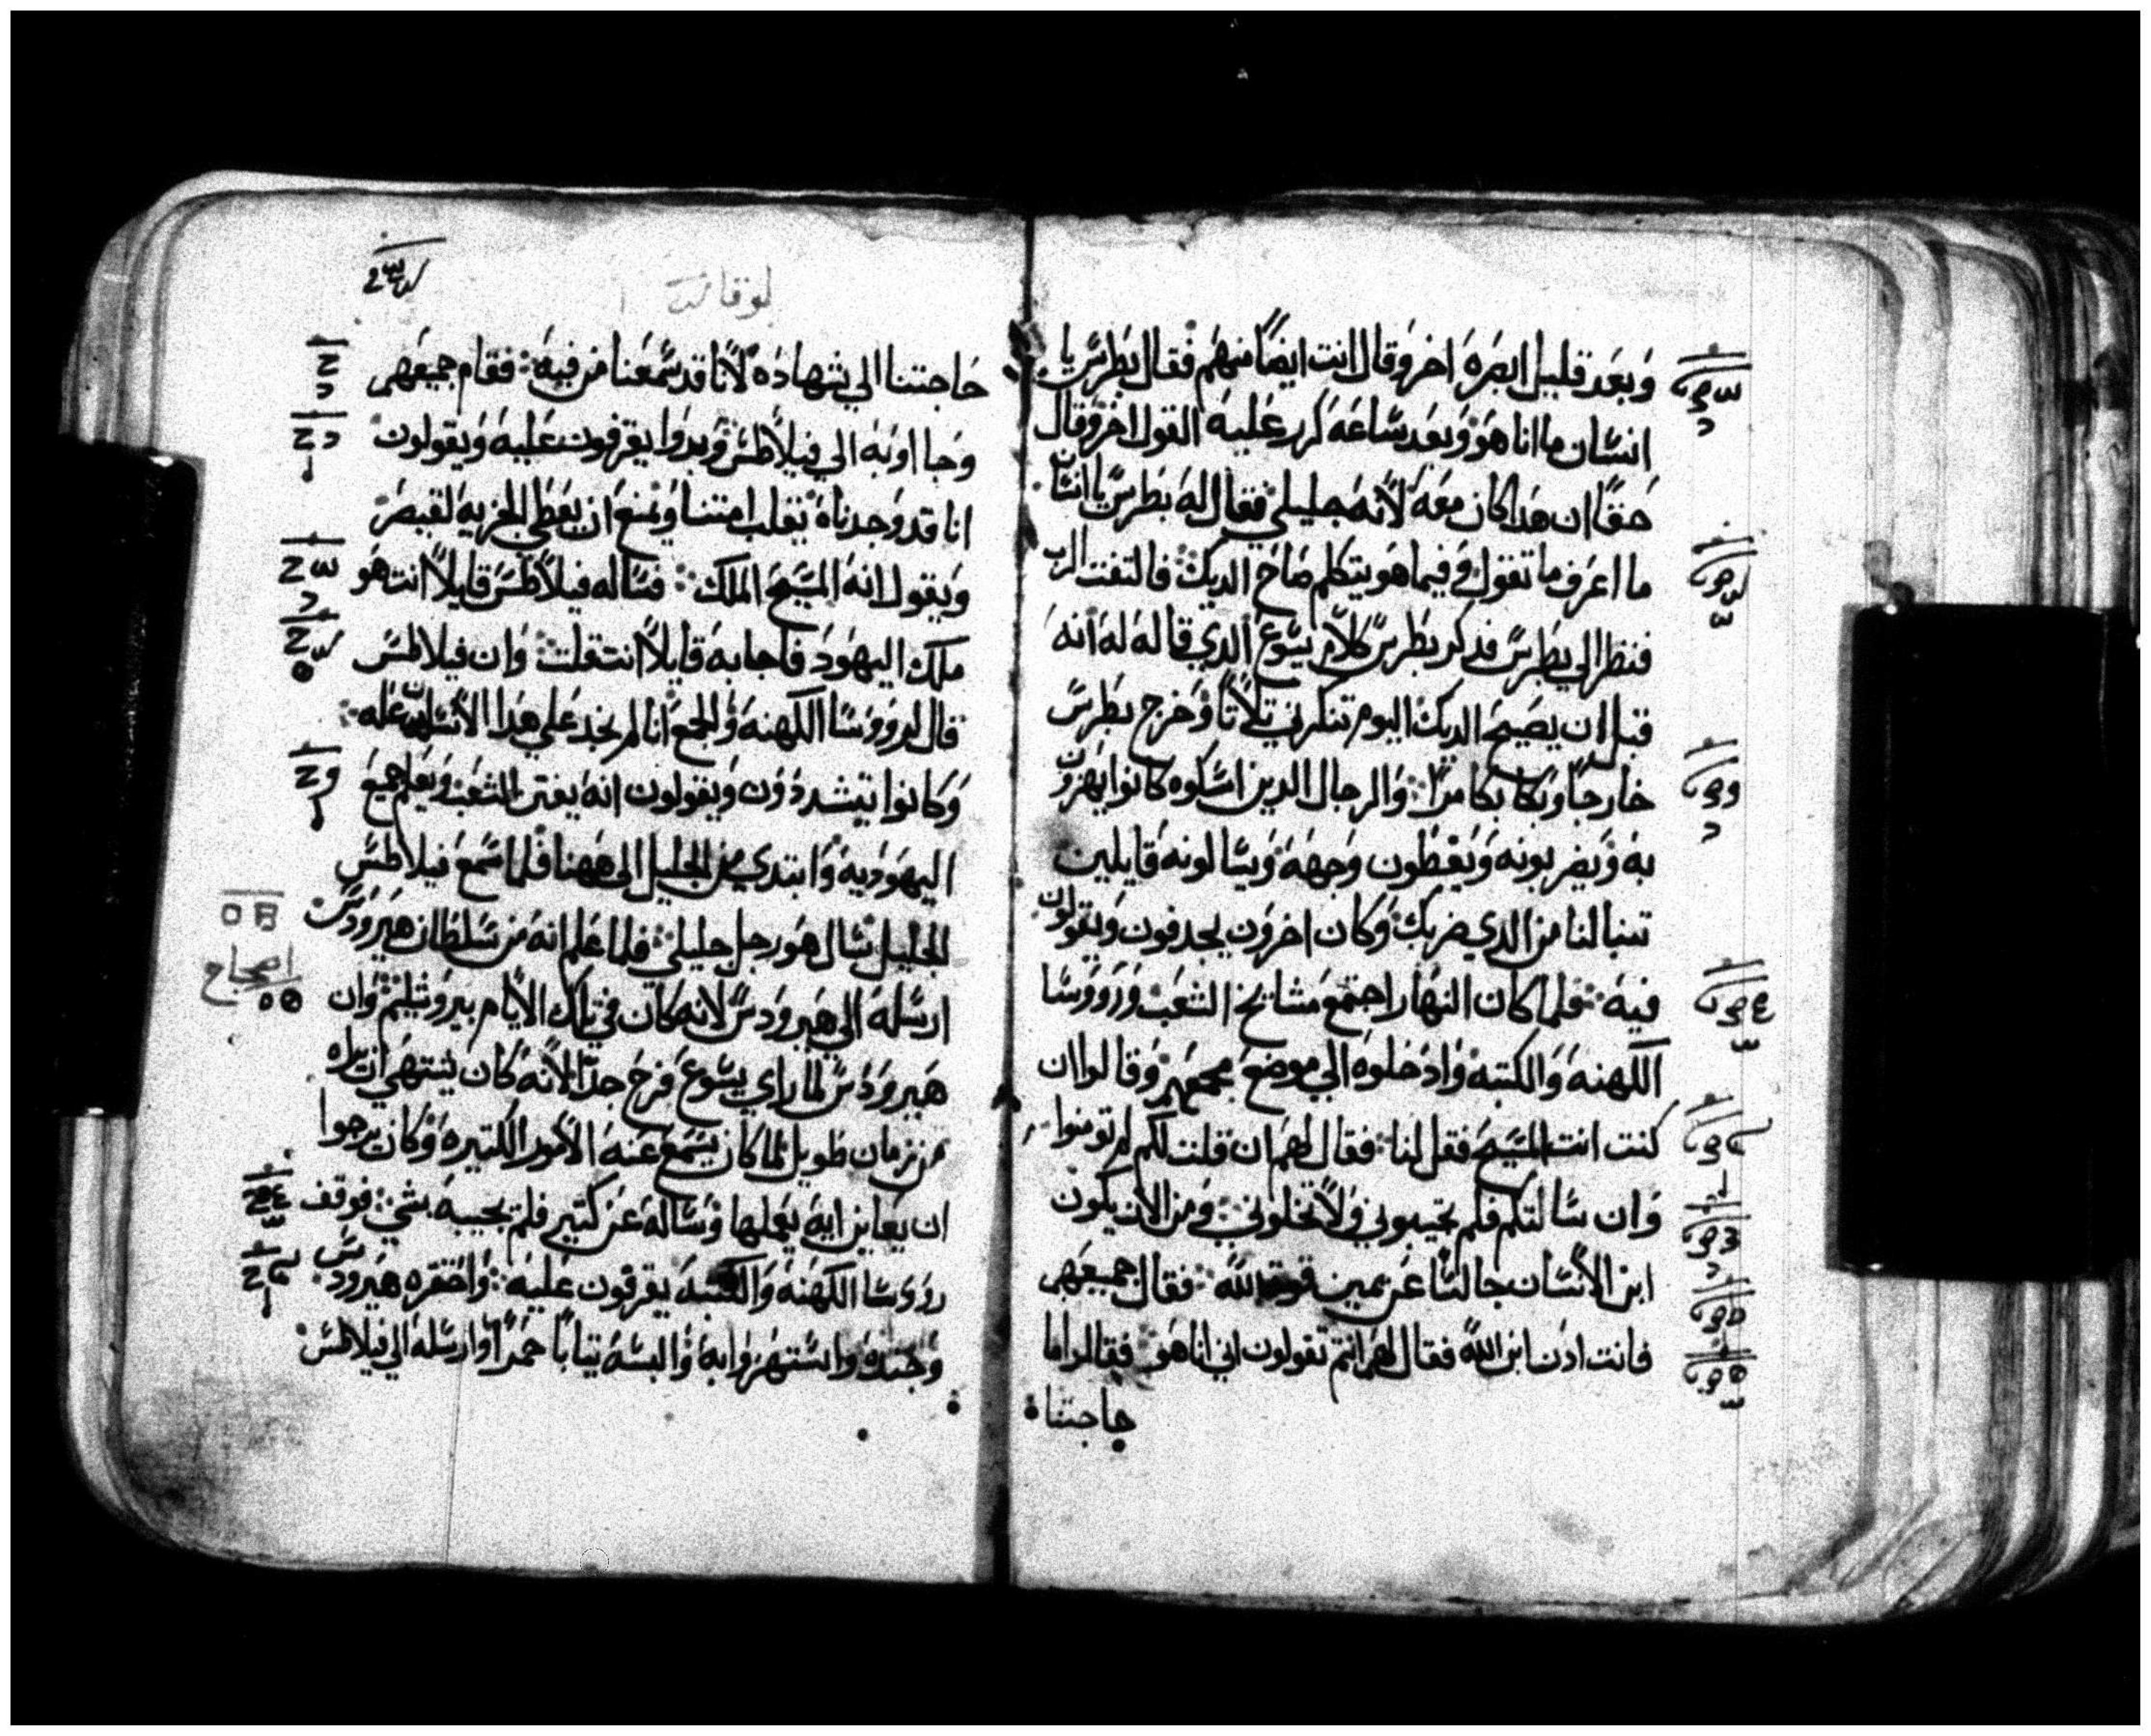 وبعد قليل ابصره اخر وقال انت ايضًا منهم فقال بطرس يا
انسان ما انا هو وبعد ساعه كرر عليه القول اخر وقال
حقًا ان هدا كان معه لانه جليلي فقال له بطرس يا انسان
ما اعرف ما تقول وفيما هو يتكلم صاح الديك فالتفت الرب
فنظر الي بطرس فدكر بطرس كلام يسوع الدي قاله له انه
قبل ان يصيح الديك اليوم تنكرني تلاتًا وخرج بطرس
خارجًا وبكا بكا مرًا والرجال الدين امسكوه كانوا يهزون
به ويضربونه ويغطون وجهه ويسالونه قايلين
تنبا لنا من الدي ضربك وكان اخرون يجدفون ويقولون
فيه فلما كان النهار اجتمع مشايخ الشعب وروووسا
الكهنه والكتبه وادخلوه الي موضع مجمعهم وقالوا ان
كنت انت المسيح فقل لنا فقال لهم ان قلت لكم لم تومنوا
وان سالتكم فلم تجيبوني ولا تخلوني ومن الان يكون
ابن الانسان جالسًا عن يمين قوة الله فقال جميعهم
فانت ادن ابن الله فقال لهم انتم تقولون اني انا هو فقالوا ما
حاجتنا
لوقا
حاجتنا الي شهاده لانا قد سمعنا من فيه فقام جميعهم
وجااو به الي فيلاطس وبدوا يقرفون عليه ويقولون
انا قد وجدناه يقلب امتنا ويمنع ان يعطي الجزيه لقيصر
ويقول انه المسيح الملك فساله فيلاطس قايلًا انت هو
ملك اليهود فاجابه قايلًا انت قلت وان فيلاطس
قال لرووسا الكهنه والجمع انا لم نجد علي هدا الانسان عله
وكانوا يتشددون ويقولون انه يفتن الشعب ويعلم جميع
اليهوديه وابتدي من الجليل الى ههنا فلما سمع فيلاطس
الجليل سال هو رجل جليلي فلما علم انه من سلطان هيرودس
ارسله الي هيرودس لانه كان في تلك الايام بيروشليم وان
هيرودس لما راي يسوع فرح جدًا لانه كان يشتهي ان يراه
من زمان طويل لما كان يسمع عنه الامور الكتيره وكان يرجوا
ان يعاين ايه يعملها وساله عن كتير فلم يجيبه بشي فوقف
رووسا الكهنه والكتبه يقرفون عليه واحتقره هيرودس
وجنده واستهزوا به والبسه تيابًا حمرًا وارسله الي فيلاطس
اصحاح